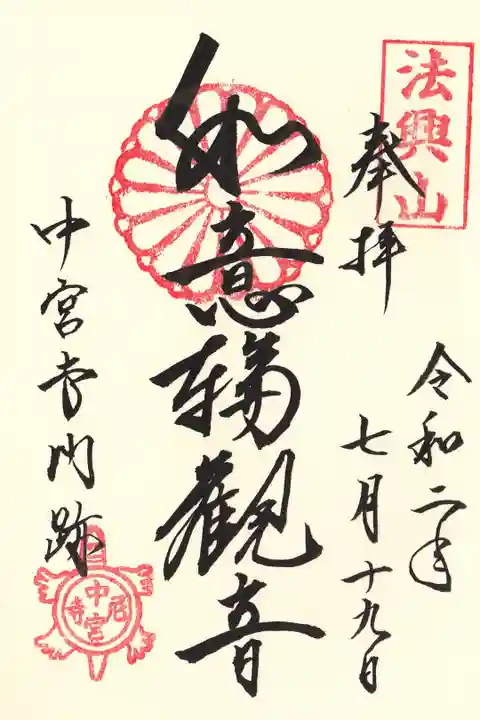 法興山
奉拝
令和二年
七月十九日
如意輪観音
中宮寺門跡
中宮寺